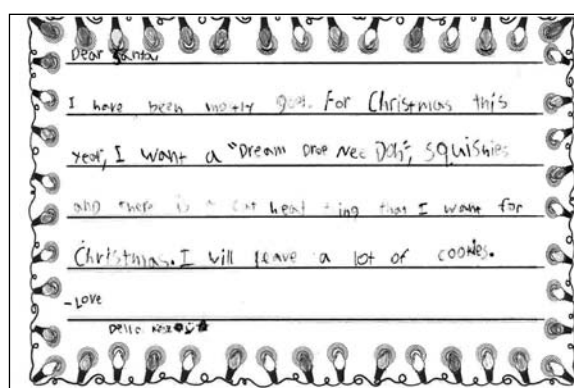 Dear Santa,
I have been mostly good. For Christmas this
year, I want a "Dream Drop Nee Doh", squishies
and there is a cat head thing that I want for
Christmas. I will leave a lot of cookies.
-Love
Della